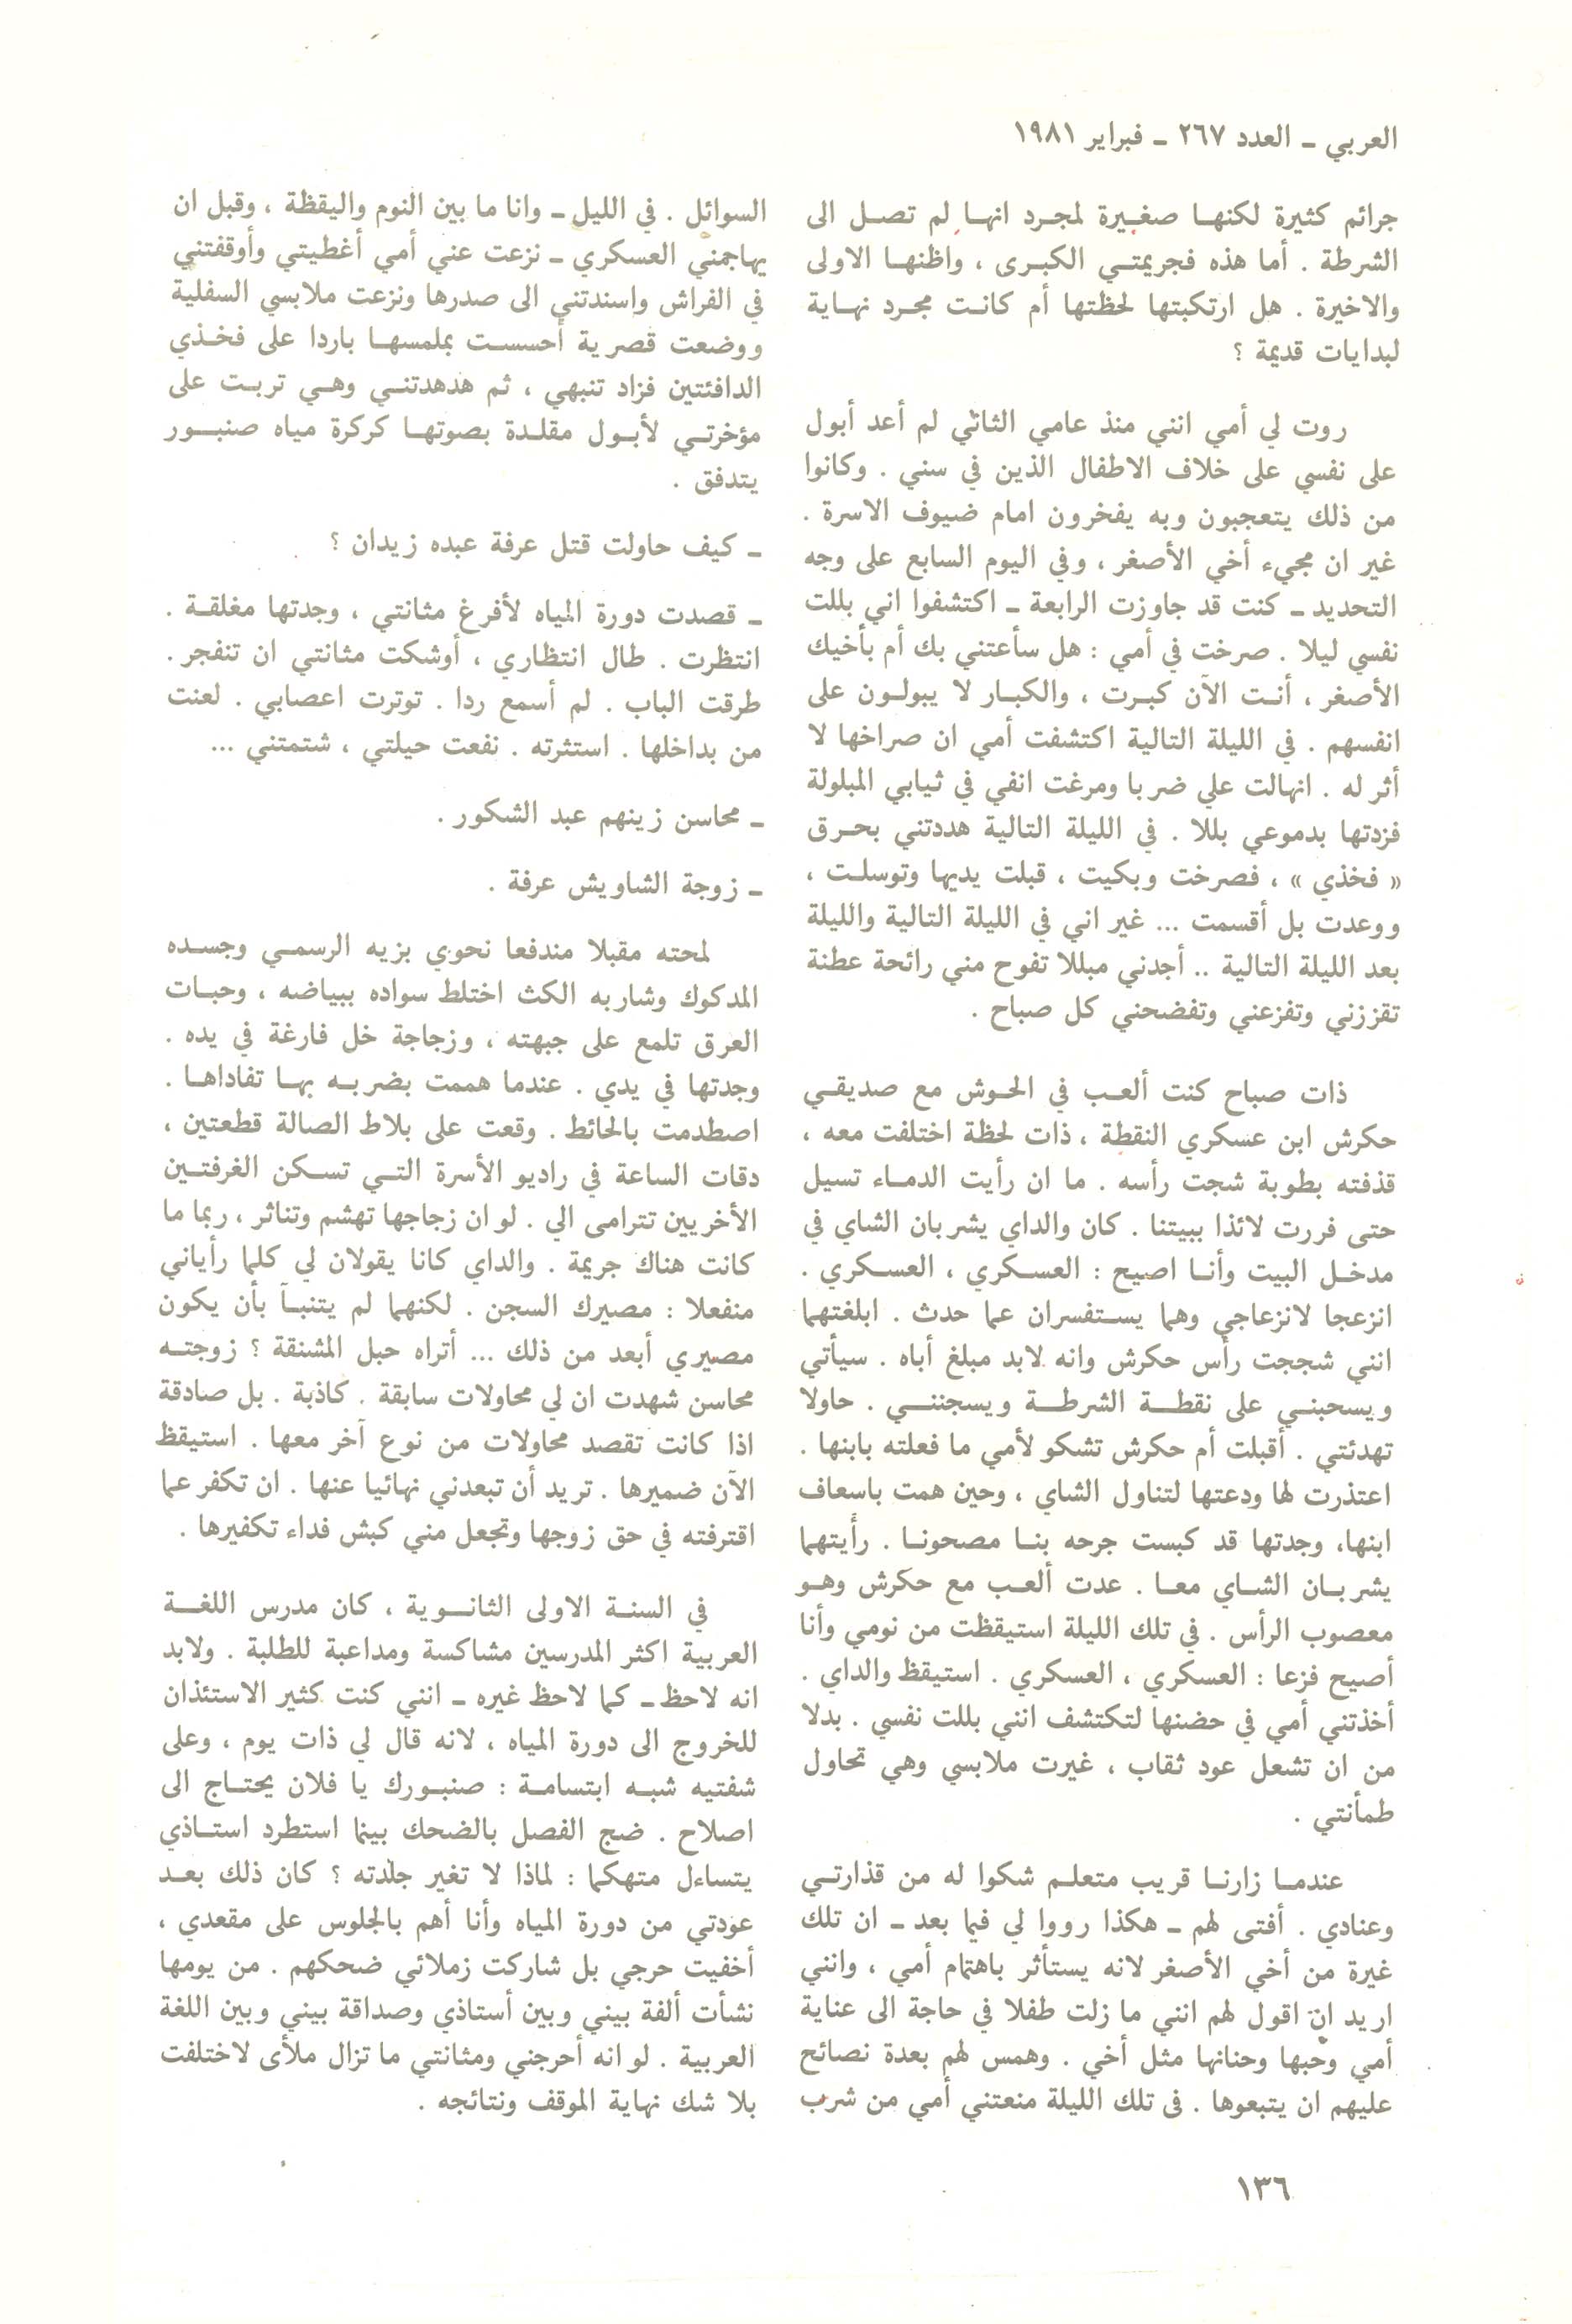 العربي ـ العدد ٢٦٧ ـ فبراير ١٩٨١
جرائم كثيرة لكنها صغيرة لمجرد انها لم تصل الى
الشرطة . أما هذه فجريمتي الكبرى ، واظنها الاولى
والاخيرة . هل ارتكبتها لحظتها أم كانت مجرد نهاية
لبدايات قديمة ؟
روت لي أمي انني منذ عامي الثاني لم أعد أبول
على نفسي على خلاف الاطفال الذين في سني . وكانوا
من ذلك يتعجبون وبه يفخرون امام ضيوف الاسرة .
غير ان مجيء أخي الأصغر ، وفي اليوم السابع على وجه
التحديد ـ كنت قد جاوزت الرابعة ـ اكتشفوا اني بللت
نفسي ليلا . صرخت في أمي : هل سأعتني بك أم بأخيك
الأصغر ، أنت الآن كبرت ، والكبار لا يبولون على
انفسهم . في الليلة التالية اكتشفت أمي ان صراخها لا
أثر له . انهالت علي ضربا ومرغت انفي في ثيابي المبلولة
فزدتها بدموعي بللا . في الليلة التالية هددتني بحرق
« فخذي » ، فصرخت وبكيت ، قبلت يديها وتوسلت ،
ووعدت بل أقسمت ... غير اني في الليلة التالية والليلة
بعد الليلة التالية .. أجدني مبللا تفوح مني رائحة عطنة
تقززني وتفزعني وتفضحني كل صباح .
ذات صباح كنت ألعب في الحوش مع صديقي
حكرش ابن عسكري النقطة ، ذات لحظة اختلفت معه ،
قذفته بطوبة شجت رأسه . ما ان رأيت الدماء تسيل
حتى فررت لائذا ببيتنا . كان والداي يشربان الشاي في
مدخل البيت وأنا اصيح : العسكري ، العسكري .
انزعجا لانزعاجي وهما يستفسران عما حدث . ابلغتهما
انني شججت رأس حكرش وانه لابد مبلغ أباه . سيأتي
ويسحبني على نقطة الشرطة ويسجنني . حاولا
تهدئتي . أقبلت أم حكرش تشكو لأمي ما فعلته بابنها .
اعتذرت لها ودعتها لتناول الشاي ، وحين همت باسعاف
ابنها، وجدتها قد كبست جرحه بنا مصحونا . رأيتهما
يشربان الشاي معا . عدت ألعب مع حكرش وهو
معصوب الرأس . في تلك الليلة استيقظت من نومي وأنا
أصيح فزعا : العسكري ، العسكري . استيقظ والداي .
أخذتني أمي في حضنها لتكتشف انني بللت نفسي . بدلا
من ان تشعل عود ثقاب ، غيرت ملابسي وهي تحاول
طمأنتي .
عندما زارنا قريب متعلم شكوا له من قذارتي
وعنادي . أفتى لهم ـ هكذا رووا لي فيما بعد ـ ان تلك
غيرة من أخي الأصغر لانه يستأثر باهتمام أمي ، وانني
اريد ان اقول لهم انني ما زلت طفلا في حاجة الى عناية
أمي وحبها وحنانها مثل أخي . وهمس لهم بعدة نصائح
عليهم ان يتبعوها . فى تلك الليلة منعتني أمي من شرب
السوائل . في الليل ـ وانا ما بين النوم واليقظة ، وقبل ان
يهاجمني العسكري ـ نزعت عني أمي أغطيتي وأوقفتني
في الفراش واسندتني الى صدرها ونزعت ملابسي السفلية
ووضعت قصرية أحسست بملمسها باردا على فخذي
الدافئتين فزاد تنبهي ، ثم هدهدتني وهي تربت على
مؤخرتي لأبول مقلدة بصوتها كركرة مياه صنبور
يتدفق .
ـ كيف حاولت قتل عرفة عبده زيدان ؟
ـ قصدت دورة المياه لأفرغ مثانتي ، وجدتها مغلقة .
انتظرت . طال انتظاري ، أوشكت مثانتي ان تنفجر .
طرقت الباب . لم أسمع ردا . توترت اعصابي . لعنت
من بداخلها . استثرته . نفعت حيلتي ، شتمتني ...
ـ محاسن زينهم عبد الشكور .
ـ زوجة الشاويش عرفة .
لمحته مقبلا مندفعا نحوي بزيه الرسمي وجسده
المدكوك وشاربه الكث اختلط سواده ببياضه ، وحبات
العرق تلمع على جبهته ، وزجاجة خل فارغة في يده .
وجدتها في يدي . عندما هممت بضربه بها تفاداها .
اصطدمت بالحائط . وقعت على بلاط الصالة قطعتين ،
دقات الساعة في راديو الأسرة التي تسكن الغرفتين
الأخريين تترامى الي . لو ان زجاجها تهشم وتناثر ، ربما ما
كانت هناك جريمة . والداي كانا يقولان لي كلما رأياني
منفعلا : مصيرك السجن . لكنهما لم يتنبآ بأن يكون
مصيري أبعد من ذلك ... أتراه حبل المشنقة ؟ زوجته
محاسن شهدت ان لي محاولات سابقة . كاذبة . بل صادقة
اذا كانت تقصد محاولات من نوع آخر معها . استيقظ
الآن ضميرها . تريد أن تبعدني نهائيا عنها . ان تكفر عما
اقترفته في حق زوجها وتجعل مني كبش فداء تكفيرها .
في السنة الاولى الثانوية ، كان مدرس اللغة
العربية اكثر المدرسين مشاكسة ومداعبة للطلبة . ولابد
انه لاحظ ـ كما لاحظ غيره ـ انني كنت كثير الاستئذان
للخروج الى دورة المياه ، لانه قال لي ذات يوم ، وعلى
شفتيه شبه ابتسامة : صنبورك يا فلان يحتاج الى
اصلاح . ضج الفصل بالضحك بينما استطرد استاذي
يتساءل متهكما : لماذا لا تغير جلدته ؟ كان ذلك بعد
عودتي من دورة المياه وأنا أهم بالجلوس على مقعدي ،
أخفيت حرجي بل شاركت زملائي ضحكهم . من يومها
نشأت ألفة بيني وبين أستاذي وصداقة بيني وبين اللغة
العربية . لو انه أحرجني ومثانتي ما تزال ملأى لاختلفت
بلا شك نهاية الموقف ونتائجه .
١٣٦